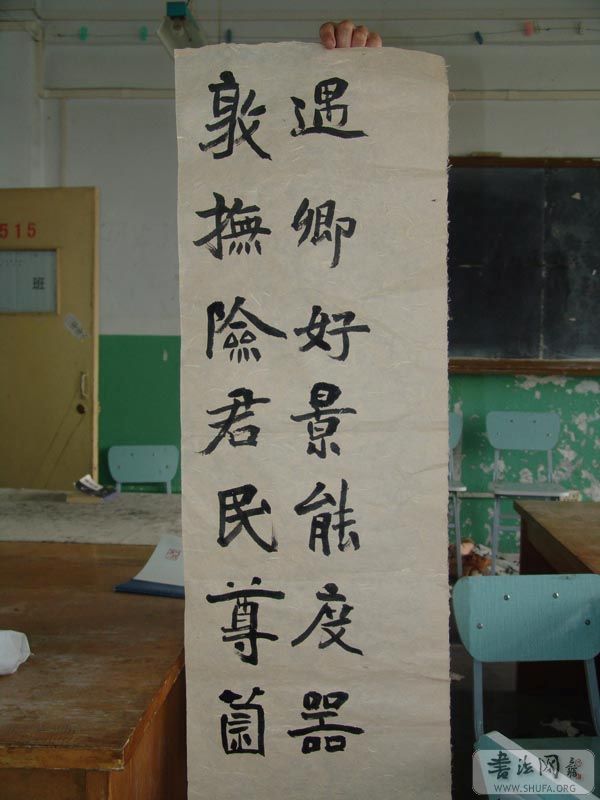 遇卿好景能度器
敦撫險君民尊
515
班
書法网
WWW.SHUFA.ORG